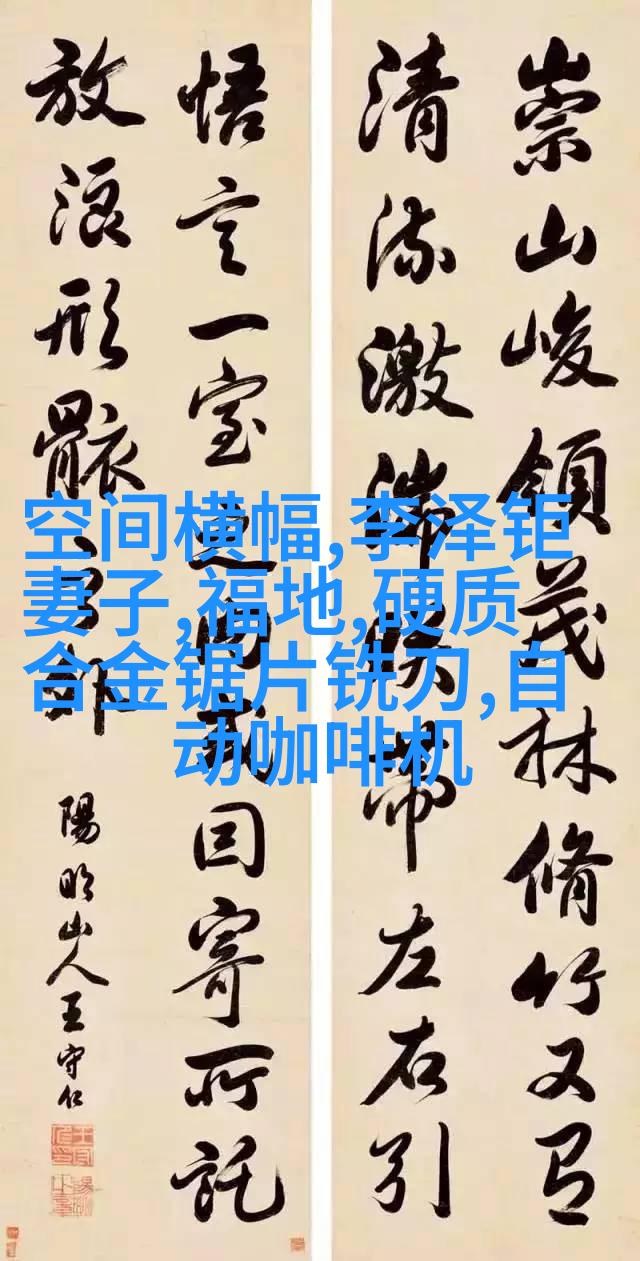 崇山峻領茂林脩竹又有
清流激湍暎帶左右引
悟言一室之内或因寄所託
放浪形骸外
陽明山人王守仁
空间横幅,李泽钜
妻子,福地,硬质
合金锯片铣刀,自
动咖啡机